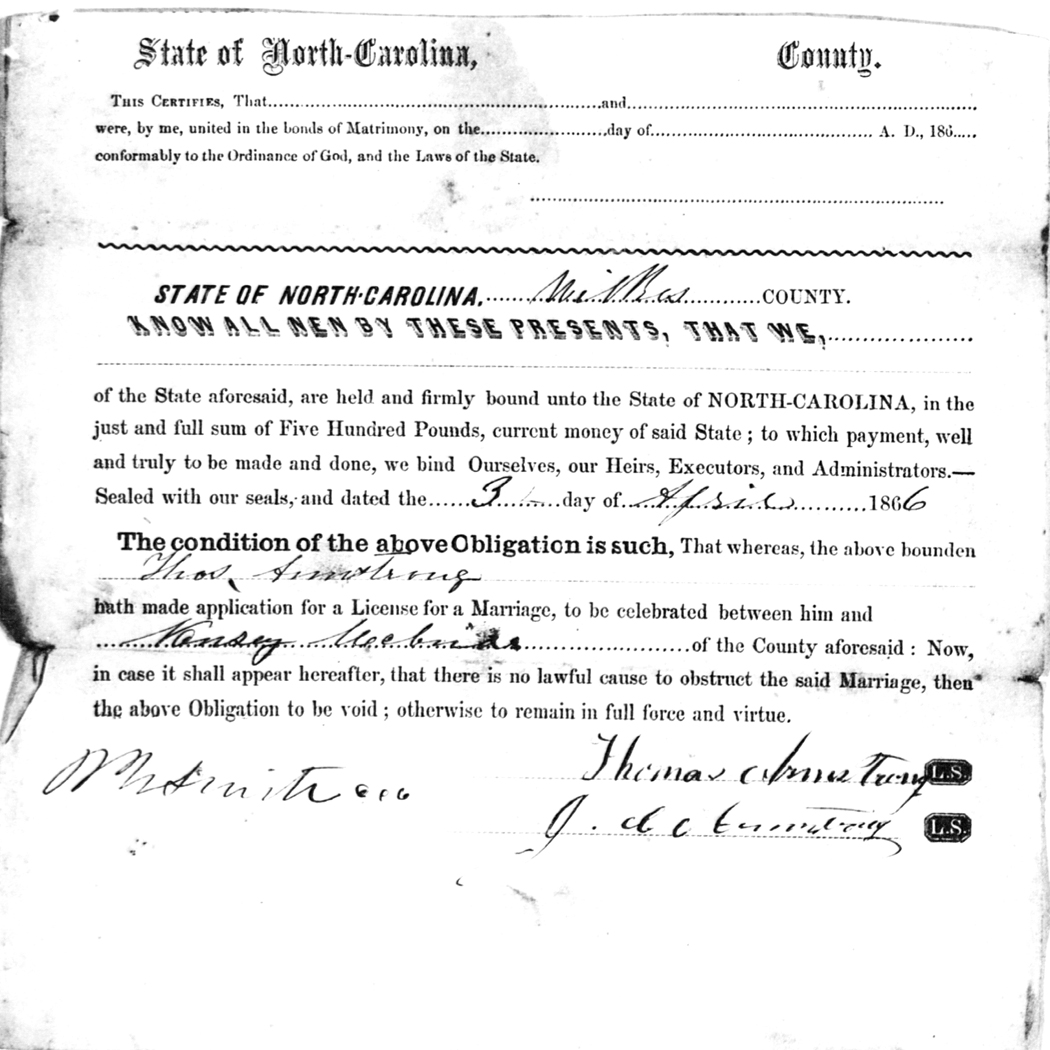 State of North-Carolina, County.
THIS CERTIFIES, That........and........
were, by me, united in the bonds of Matrimony, on the........day of........ A. D., 186.....
conformably to the Ordinance of God, and the Laws of the State.
STATE OF NORTH-CAROLINA, Wilkes COUNTY.
KNOW ALL NEN BY THESE PRESENTS, THAT WE,
of the State aforesaid, are held and firmly bound unto the State of NORTH-CAROLINA, in the
just and full sum of Five Hundred Pounds, current money of said State; to which payment, well
and truly to be made and done, we bind Ourselves, our Heirs, Executors, and Administrators.—
Sealed with our seals, and dated the 3 day of April 1866
The condition of the above Obligation is such, That whereas, the above bounden
Thos Armstrong
hath made application for a License for a Marriage, to be celebrated between him and
of the County aforesaid: Now,
in case it shall appear hereafter, that there is no lawful cause to obstruct the said Marriage, then
the above Obligation to be void; otherwise to remain in full force and virtue.
Thomas Armstrong L.S.
Armstrong L.S.